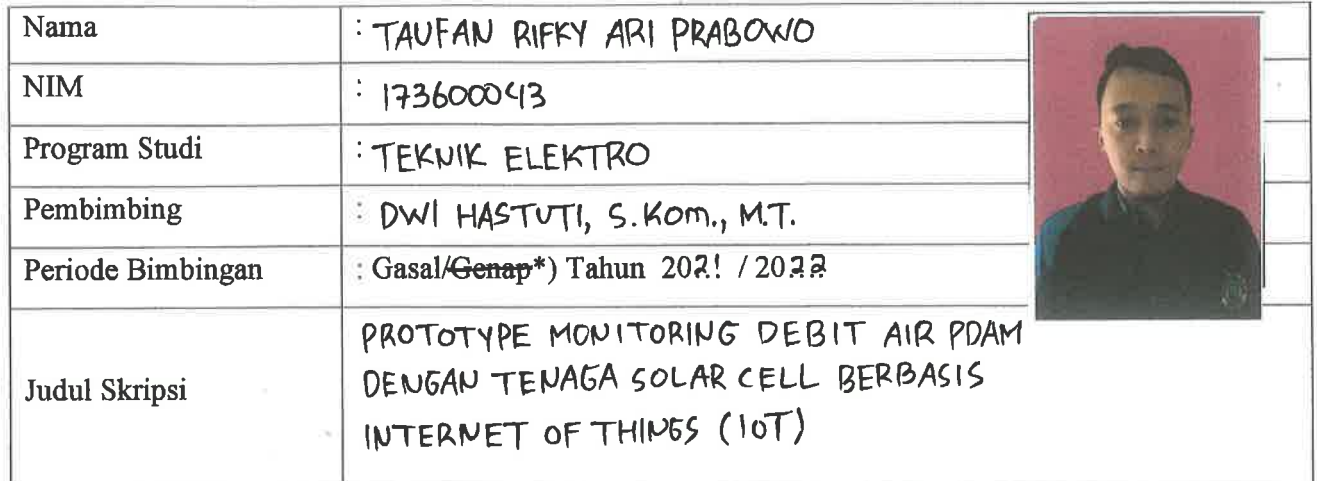 Nama : TAUFAN RIFKY ARI PRABOWO
NIM : 1736000043
Program Studi : TEKNIK ELEKTRO
Pembimbing : DWI HASTUTI, S.Kom., M.T.
Periode Bimbingan : Gasal/Genap*) Tahun 2021 / 2022
Judul Skripsi
PROTOTYPE MONITORING DEBIT AIR PDAM
DENGAN TENAGA SOLAR CELL BERBASIS
INTERNET OF THINGS (IoT)